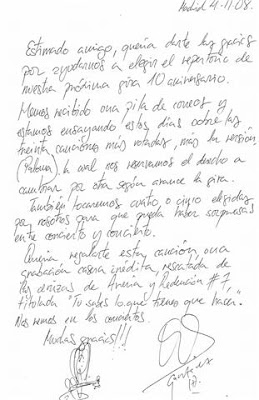 Madrid 4-11-08.
Estimado amigo, quería darte las gracias
por ayudarnos a elegir el repertorio de
nuestra próxima gira 10 aniversario.
Hemos recibido una pila de correos y
estamos ensayando estos días sobre las
treinta canciones más votadas, más la versión,
Paloma, la cual nos reservamos el derecho a
cambiar por otra según avance la gira.
También tocaremos cuatro o cinco elegidas
por nosotros para que pueda haber sorpresas
entre concierto y concierto.
Quería regalarte esta canción, una
grabación casera inédita, rescatada de
las cenizas de Avería y Redención #7,
titulada "Tú sabes lo que tienes que hacer."
Nos vemos en los conciertos.
Muchas gracias!!!